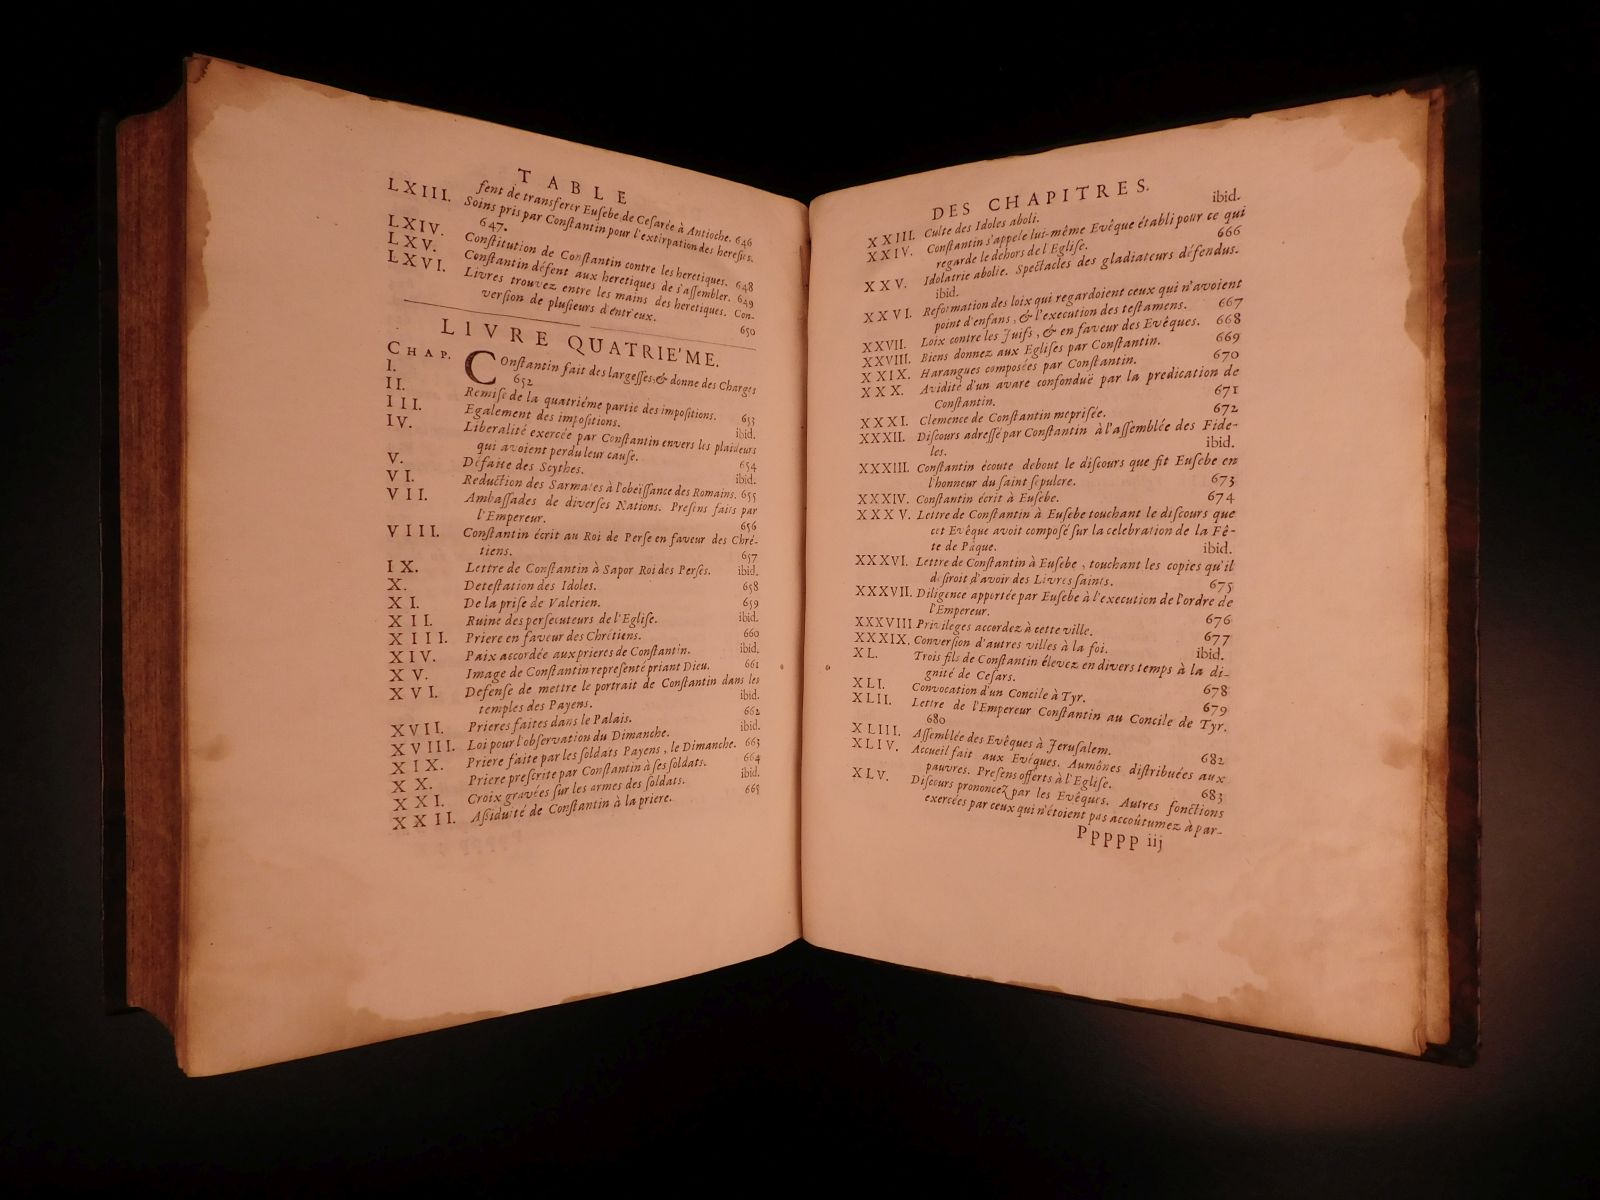 TABLE
sent de transferer Eusebe de Cesarée à Antioche. 646
LXIII. Soins pris par Constantin pour l'extirpation des heresies.
647.
LXIV. Constitution de Constantin contre les heretiques. 648
LXV. Constantin défent aux heretiques de s'assembler. 649
LXVI. Livres trouvez entre les mains des heretiques. Con-
version de plusieurs d'entr'eux. 650
LIVRE QUATRIE'ME.
CHAP.
I. Constantin fait des largesses, & donne des Charges
652
II. Remise de la quatriéme partie des impositions. 653
III. Egalement des impositions. ibid.
IV. Liberalité exercée par Constantin envers les plaideurs
qui avoient perdu leur cause. 654
V. Défaite des Scythes. ibid.
VI. Reduction des Sarmates à l'obeïssance des Romains. 655
VII. Ambassades de diverses Nations. Presens faits par
l'Empereur. 656
VIII. Constantin écrit au Roi de Perse en faveur des Chré-
tiens. 657
IX. Lettre de Constantin à Sapor Roi des Perses. ibid.
X. Detestation des Idoles. 658
XI. De la prise de Valerien. 659
XII. Ruine des persecuteurs de l'Eglise. ibid.
XIII. Priere en faveur des Chrétiens. 660
XIV. Paix accordée aux prieres de Constantin. ibid.
XV. Image de Constantin representé priant Dieu. 661
XVI. Defense de mettre le portrait de Constantin dans les
temples des Payens. ibid.
XVII. Prieres faites dans le Palais. 662
XVIII. Loi pour l'observation du Dimanche. ibid.
XIX. Priere faite par les soldats Payens, le Dimanche. 663
XX. Priere prescrite par Constantin à ses soldats. 664
XXI. Croix gravées sur les armes des soldats. ibid.
XXII. Assiduité de Constantin à la priere. 665
DES CHAPITRES.
XXIII. Culte des Idoles aboli. ibid.
XXIV. Constantin s'appele lui-même Evêque établi pour ce qui
regarde le dehors de l'Eglise. 666
XXV. Idolatrie abolie. Spectacles des gladiateurs défendus.
ibid.
XXVI. Reformation des loix qui regardoient ceux qui n'avoient
point d'enfans, & l'execution des testamens. 667
XXVII. Loix contre les Juifs, & en faveur des Evêques. 668
XXVIII. Biens donnez aux Eglises par Constantin. 669
XXIX. Harangues composées par Constantin. 670
XXX. Avidité d'un avare confonduë par la predication de
Constantin. 671
XXXI. Clemence de Constantin méprisée. 672
XXXII. Discours adressé par Constantin à l'assemblée des Fide-
les. ibid.
XXXIII. Constantin écoute debout le discours que fit Eusebe en
l'honneur du saint sepulcre. 673
XXXIV. Constantin écrit à Eusebe. 674
XXXV. Lettre de Constantin à Eusebe touchant le discours que
cet Evêque avoit composé sur la celebration de la Fê-
te de Pâque. ibid.
XXXVI. Lettre de Constantin à Eusebe, touchant les copies qu'il
desiroit d'avoir des Livres saints. 675
XXXVII. Diligence apportée par Eusebe à l'execution de l'ordre de
l'Empereur. 676
XXXVIII Privileges accordez à cette ville. 677
XXXIX. Conversion d'autres villes à la foi. ibid.
XL. Trois fils de Constantin élevez en divers temps à la di-
gnité de Cesars. 678
XLI. Convocation d'un Concile à Tyr. 679
XLII. Lettre de l'Empereur Constantin au Concile de Tyr.
680
XLIII. Assemblée des Evêques à Jerusalem. 682
XLIV. Accueil fait aux Evêques. Aumônes distribuées aux
pauvres. Presens offerts à l'Eglise. 683
XLV. Discours prononcez par les Evêques. Autres fonctions
exercées par ceux qui n'étoient pas accoûtumez à par-
Ppppp iij